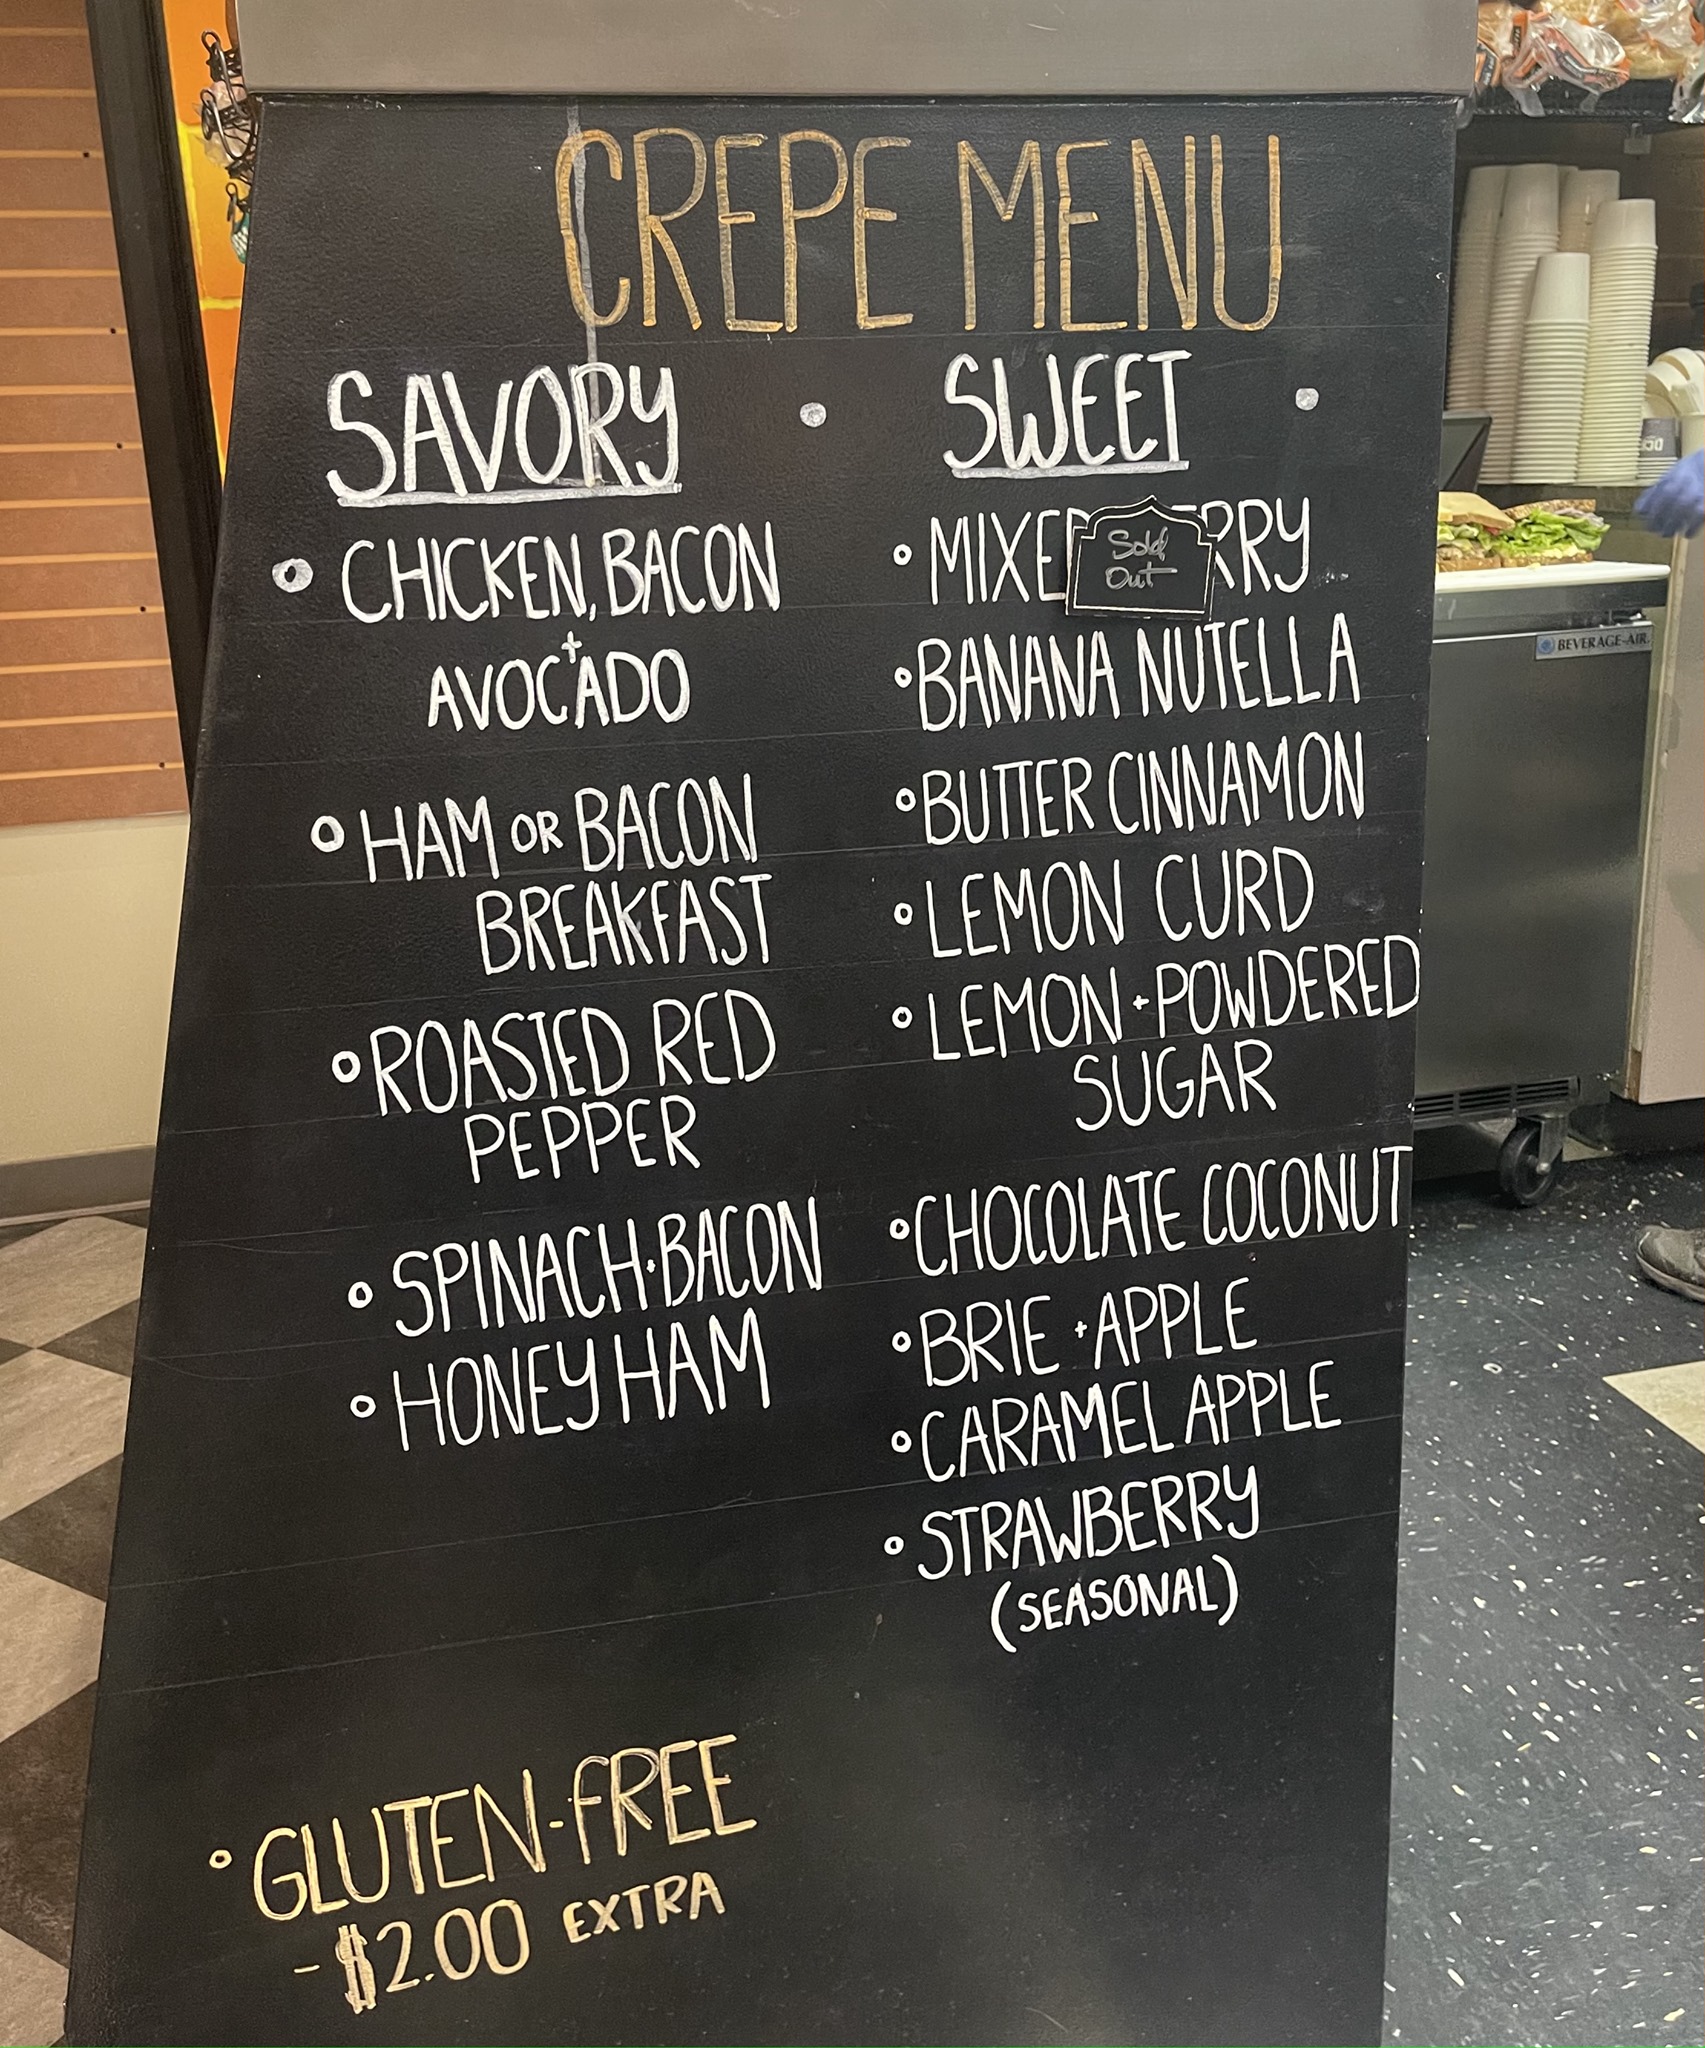 CREPE MENU
SAVORY
CHICKEN, BACON
+
AVOCADO
HAM OR BACON
BREAKFAST
ROASTED RED
PEPPER
SPINACH + BACON
HONEY HAM
SWEET
MIXED BERRY
Sold
Out
BANANA NUTELLA
BUTTER CINNAMON
LEMON CURD
LEMON + POWDERED
SUGAR
CHOCOLATE COCONUT
BRIE + APPLE
CARAMEL APPLE
STRAWBERRY
(SEASONAL)
GLUTEN-FREE
- $2.00 EXTRA
BEVERAGE-AIR